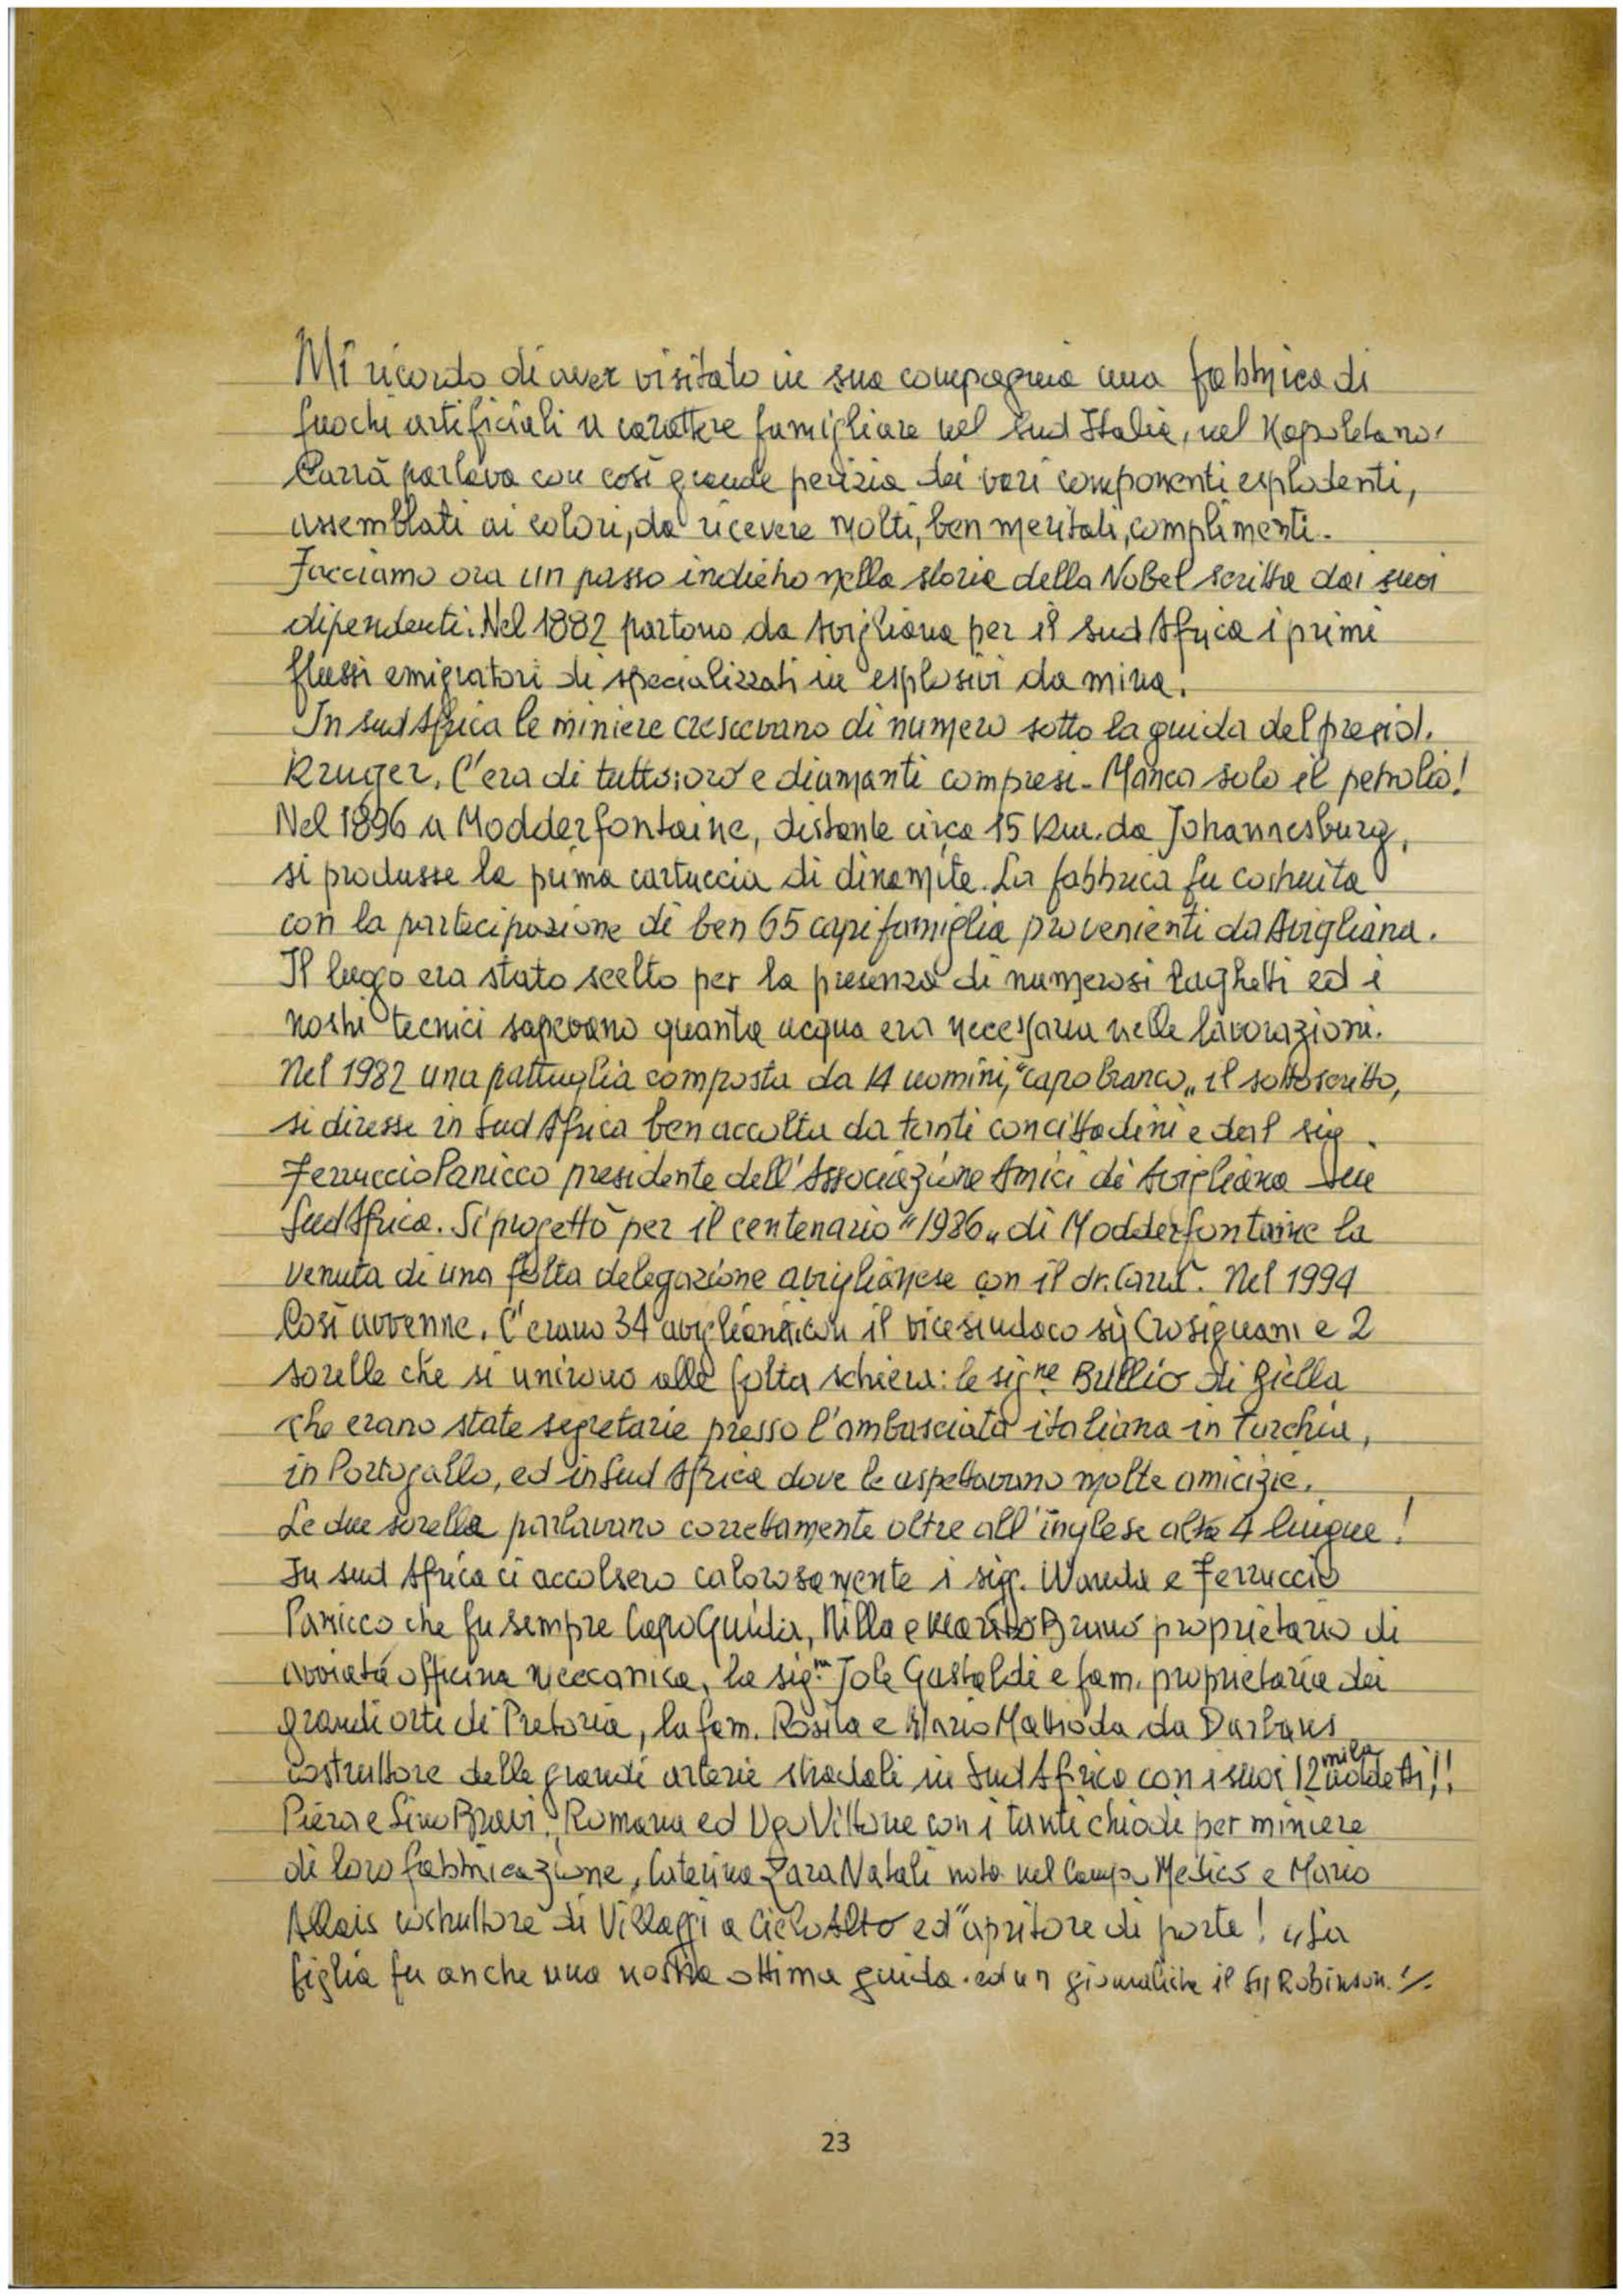 Mi ricordo di aver visitato in sua compagnia una fabbrica di
fuochi artificiali a carattere famigliare nel Sud Italia, nel Napoletano.
Carrà parlava con così grande perizia dei vari componenti esplodenti,
assemblati ai colori, da ricevere molti, ben meritati, complimenti.
Facciamo ora un passo indietro nella storia della Nobel scritta dai suoi
dipendenti. Nel 1882 partono da Avigliana per il Sud Africa i primi
flussi emigratori di specializzati in esplosivi da mina!
In Sud Africa le miniere crescevano di numero sotto la guida del presid.
Kruger. C'era di tutto: oro e diamanti compresi - Manca solo il petrolio!
Nel 1896 a Modderfontaine, distante circa 15 Km. da Johannesburg,
si produsse la prima cartuccia di dinamite. La fabbrica fu costruita
con la partecipazione di ben 65 capi famiglia provenienti da Avigliana.
Il luogo era stato scelto per la presenza di numerosi laghetti ed i
nostri tecnici sapevano quanta acqua era necessaria nelle lavorazioni.
Nel 1982 una pattuglia composta da 14 uomini, "capo branco" il sottoscritto,
si diresse in Sud Africa ben accolta da tanti concittadini e dal sig.
Ferruccio Panicco presidente dell'Associazione Amici di Avigliana in
Sud Africa. Si progettò per il centenario "1986" di Modderfontaine la
venuta di una folta delegazione aviglianese con il dr. Nel 1994
Così avvenne. C'erano 34 con il vicesindaco sig Crosignani e 2
sorelle che si unirono alla folta schiera: le sig.ne Bullio di Biella
che erano state segretarie presso l'ambasciata italiana in Turchia,
in Portogallo, ed in Sud Africa dove le aspettavano molte amicizie.
Le due sorelle parlavano correttamente oltre all'inglese altre 4 lingue!
In Sud Africa ci accolsero calorosamente i sigg. Wanda e Ferruccio
Panicco che fu sempre Capo Guida, Nilla e marito Bruno proprietario di
avviata officina meccanica, la sig.ra Jole Gastaldi e fam. proprietaria dei
grandi orti di Pretoria, la fam. Rosita e Mario Mattioda da
costruttore delle grandi arterie stradali in Sud Africa con i suoi 12 mila addetti!!
Piera e Lino Bravi, Romana ed Ugo Villone con i tanti chiodi per miniere
di loro fabbricazione, Caterina Zara Natali nota nel Campo e Mario
Allais costruttore di Villaggi a Cielo Alto ed "apritore di porte!" La
figlia fu anche una nostra ottima guida. ed un il sig Robinson. ./.
23